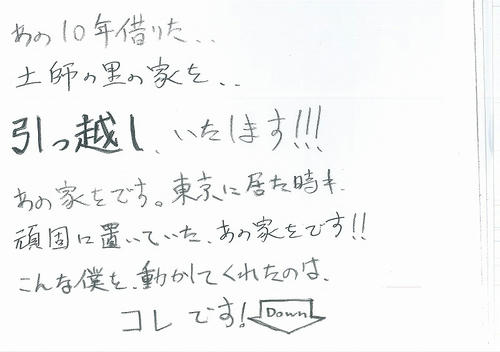 あの10年借りた、、
土師の里の家を、、
引っ越し、いたします!!!
あの家をです。東京に居た時も、
頑固に置いていた、あの家をです!!
こんな僕を、動かしてくれたのは、
コレです! Down